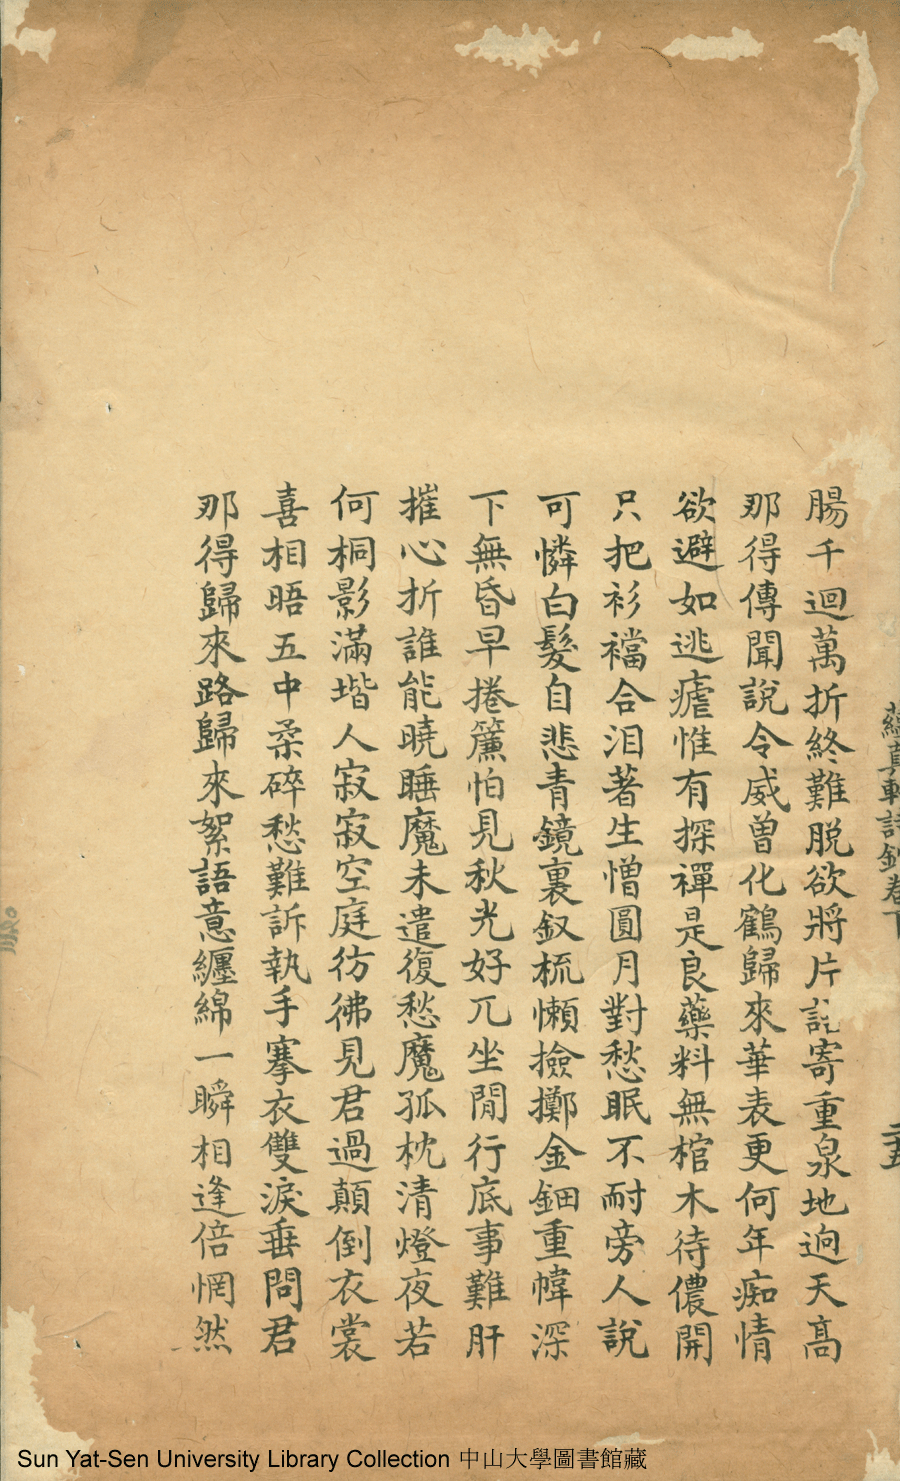 腸千迴萬折終難脫欲將片訛寄重泉地逈天高
那得傳聞說令威曾化鶴歸來華表更何年痴情
欲避如逃瘧惟有探禪是良藥料無棺木待儂開
只把衫襠合泪著生憎圓月對愁眠不耐旁人說
可憐白髮自悲青鏡裏釵梳懶撿擲金鈿重幃深
下無昏早捲簾怕見秋光好兀坐閒行底事難肝
摧心折誰能曉睡魔未遣復愁魔孤枕清燈夜若
何桐影滿堦人寂寂空庭彷彿見君過顛倒衣裳
喜相晤五中柔碎愁難訴執手搴衣雙淚垂問君
那得歸來路歸來絮語意纏綿一瞬相逢倍惘然
蘊真軒詩鈔卷下
二五
Sun Yat-Sen University Library Collection 中山大學圖書館藏